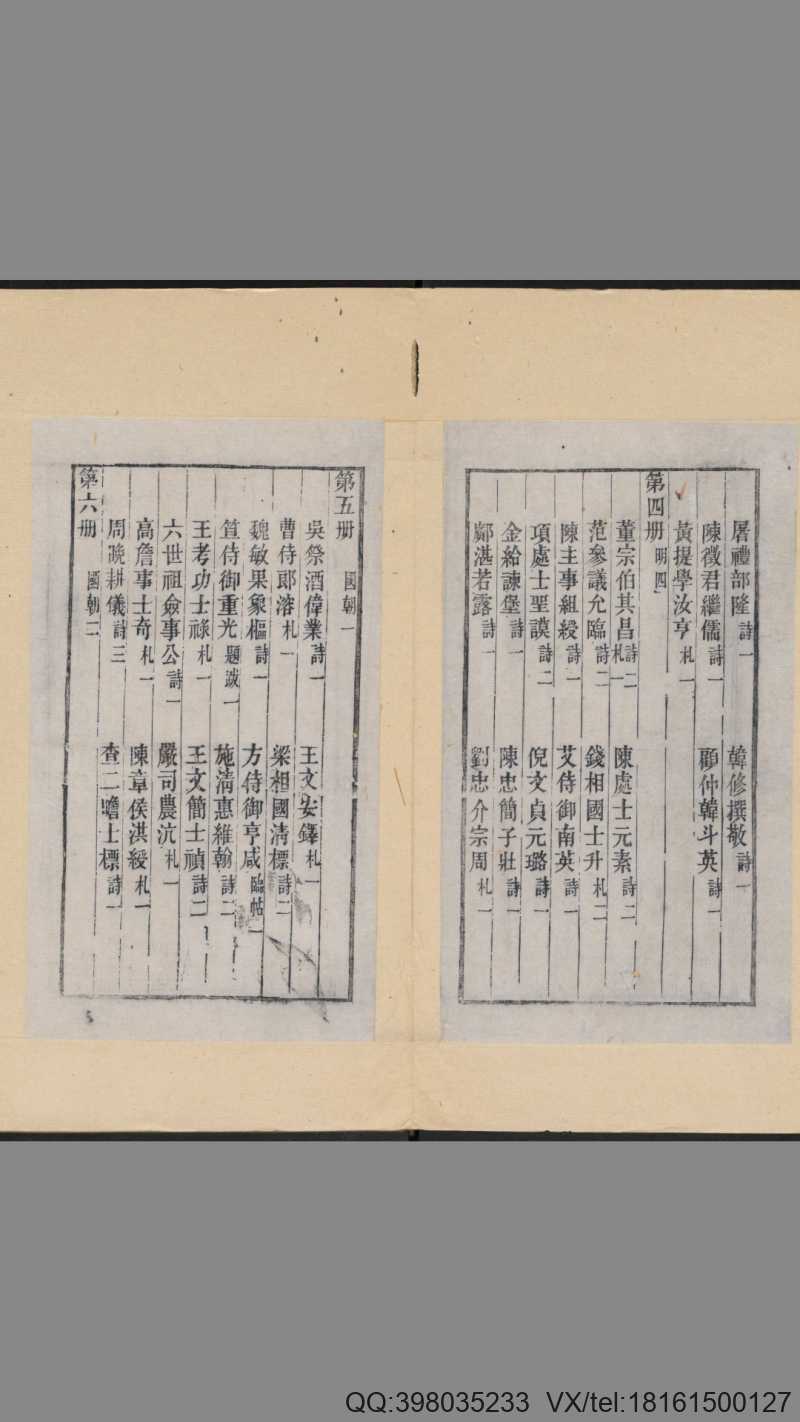 屠禮部隆詩一　韓修撰敬詩一
陳徵君繼儒詩一　顧仲韓斗英詩一
黃提學汝亨札一
第四册明四
董宗伯其昌詩二札一　陳處士元素詩二
范參議允臨詩二　錢相國士升札二
陳主事組綬詩一　艾侍御南英詩一
項處士聖謨詩二　倪文貞元璐詩一
金給諫堡詩一　陳忠簡子壯詩一
鄺湛若露詩一　劉忠介宗周札一
第五册　國朝一
吳祭酒偉業詩一　王文安鐸札一
曹侍郎溶札一　梁相國清標詩二
魏敏果象樞詩一　方侍御亨咸臨帖一
笪侍御重光題跋一　施清惠維翰詩二
王考功士祿札一　王文簡士禎詩二
六世祖僉事公詩一　嚴司農沆札一
高詹事士奇札一　陳章侯洪綬札一
周晚耕儀詩三　查二瞻士標詩一
第六册　國朝二
QQ:398035233 VX/tel:18161500127